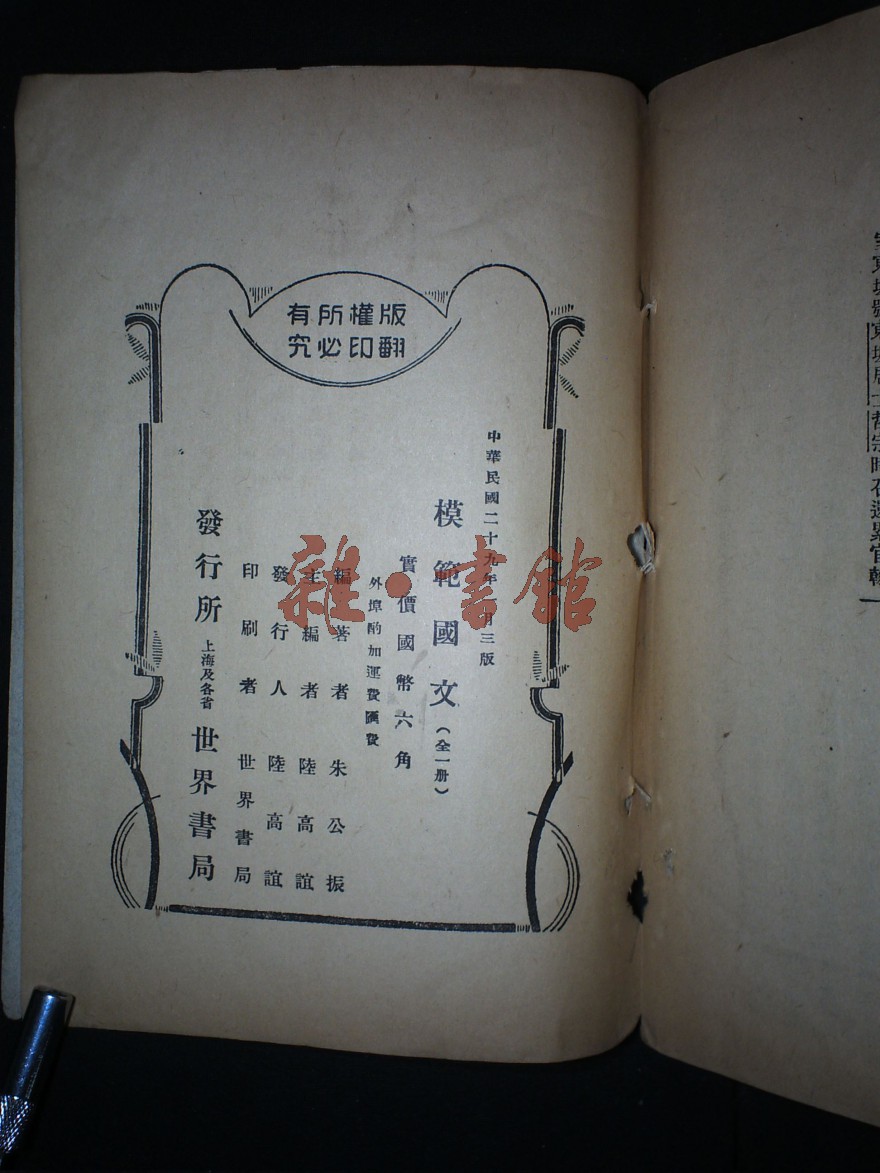 版權所有
翻印必究
中華民國二十九年 月三版
模範國文(全一册)
實價國幣六角
外埠酌加運費匯費
編著者 朱公振
主編者 陸高誼
發行人 陸高誼
印刷者 世界書局
發行所 上海及各省 世界書局
雜·書館
東坡居士哲宗時召還累官